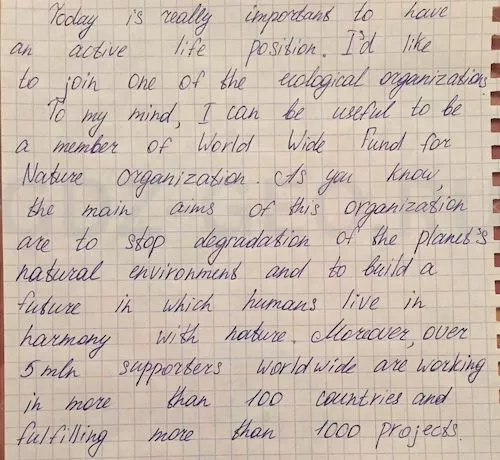 Today is really important to have
an active life position. I'd like
to join one of the ecological organizations.
To my mind, I can be useful to be
a member of World Wide Fund for
Nature organization. As you know,
the main aims of this organization
are to stop degradation of the planet's
natural environment and to build a
future in which humans live in
harmony with nature. Moreover, over
5 mln supporters worldwide are working
in more than 100 countries and
fulfilling more than 1000 projects.